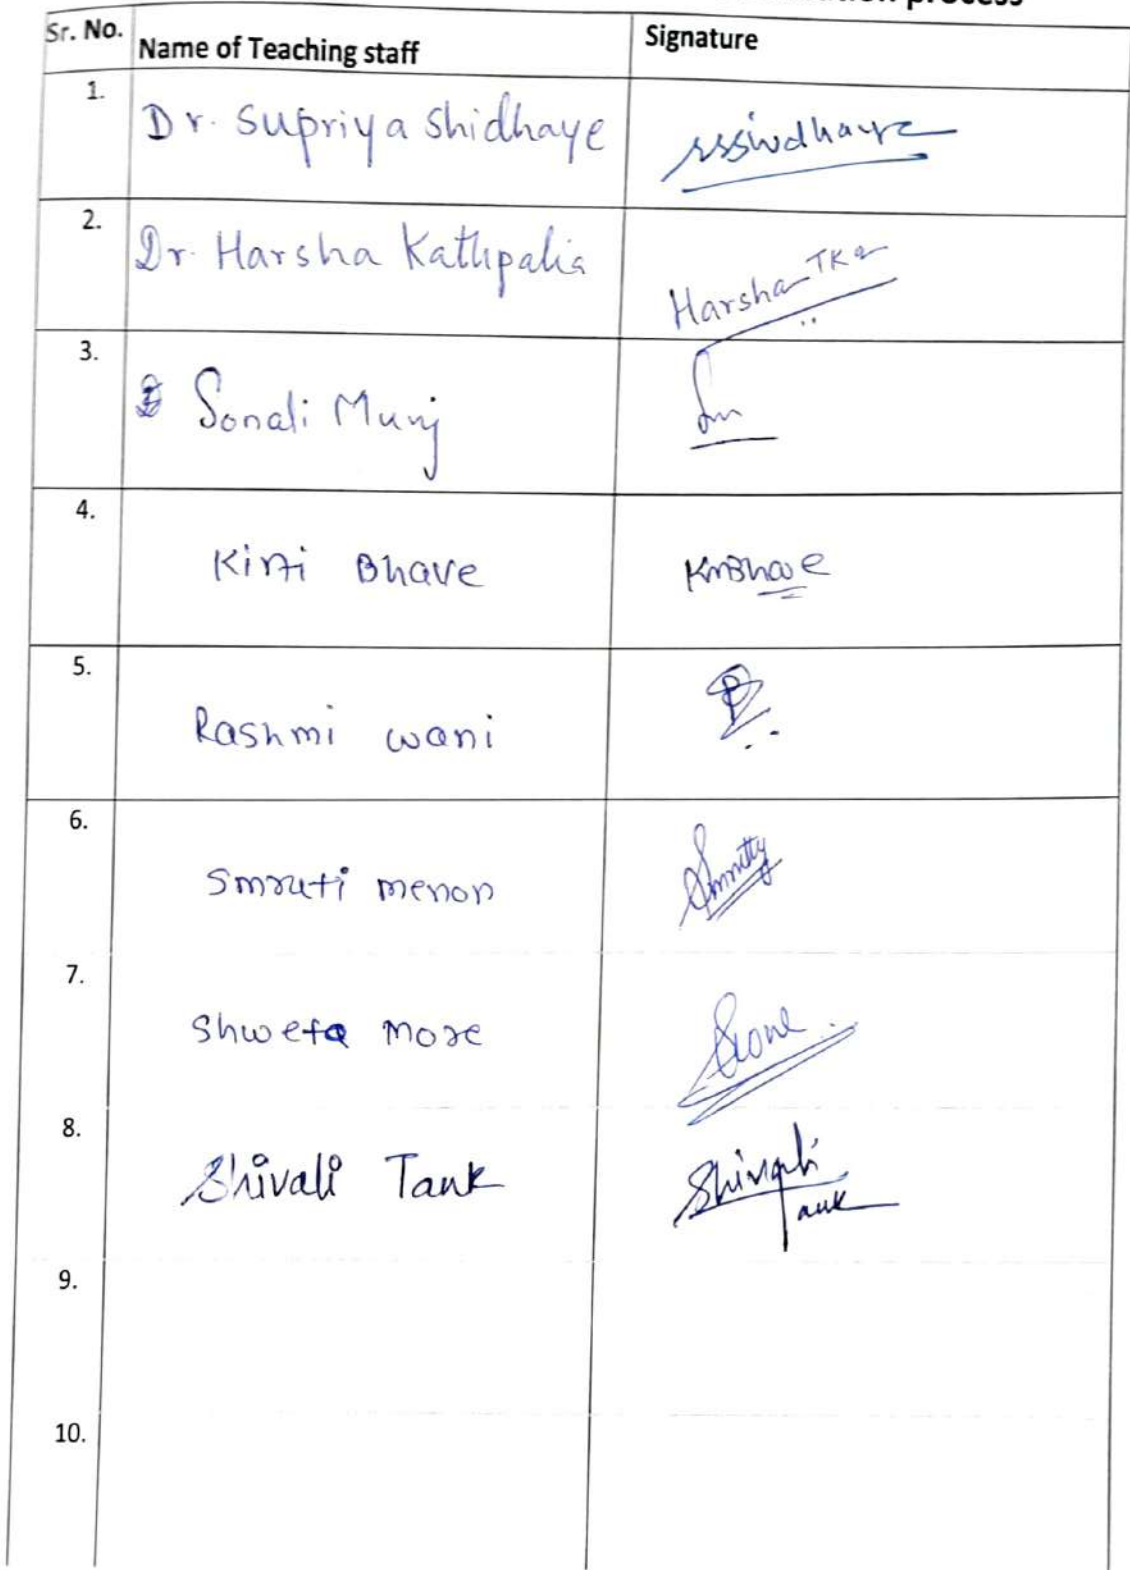 process
Sr. No. Name of Teaching staff Signature
1. Dr. Supriya Shidhaye sssidhaye
2. Dr. Harsha Kathpalia Harsha TKa
3. Sonali Munj Sm
4. Kirti Bhave KMBhave
5. Rashmi wani
6. Smruti menon Smrutty
7. Shweta More
8. Shivali Tank Shivali Tank
9.
10.